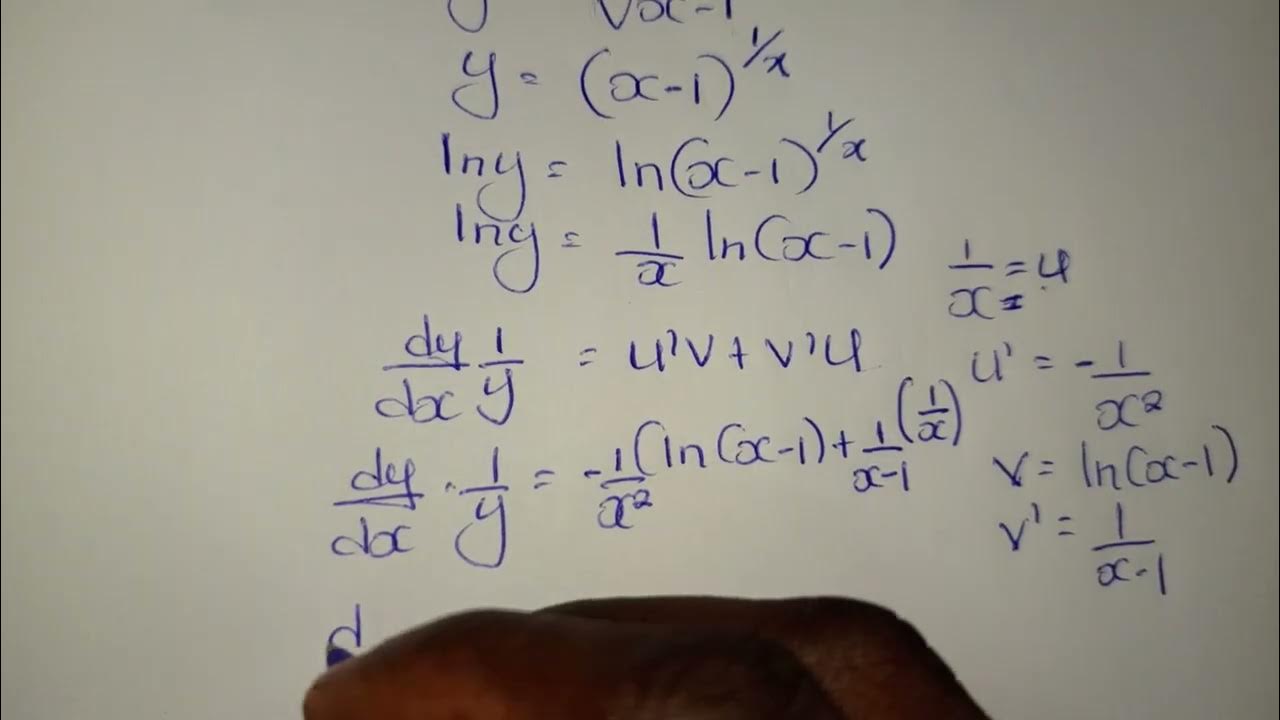 y √x-1
y = (x-1)^1/x
lny = ln(x-1)^1/x
lny = 1/x ln(x-1)
1/x = u
dy/dx 1/y = u'v + v'u
u' = -1/x²
dy/dx · 1/y = -1/x² (ln(x-1) + 1/x-1 (1/x)
v = ln(x-1)
v' = 1/x-1
d